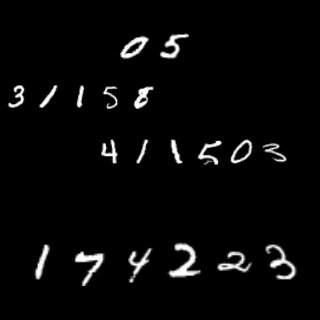 05
31158
411503
174223